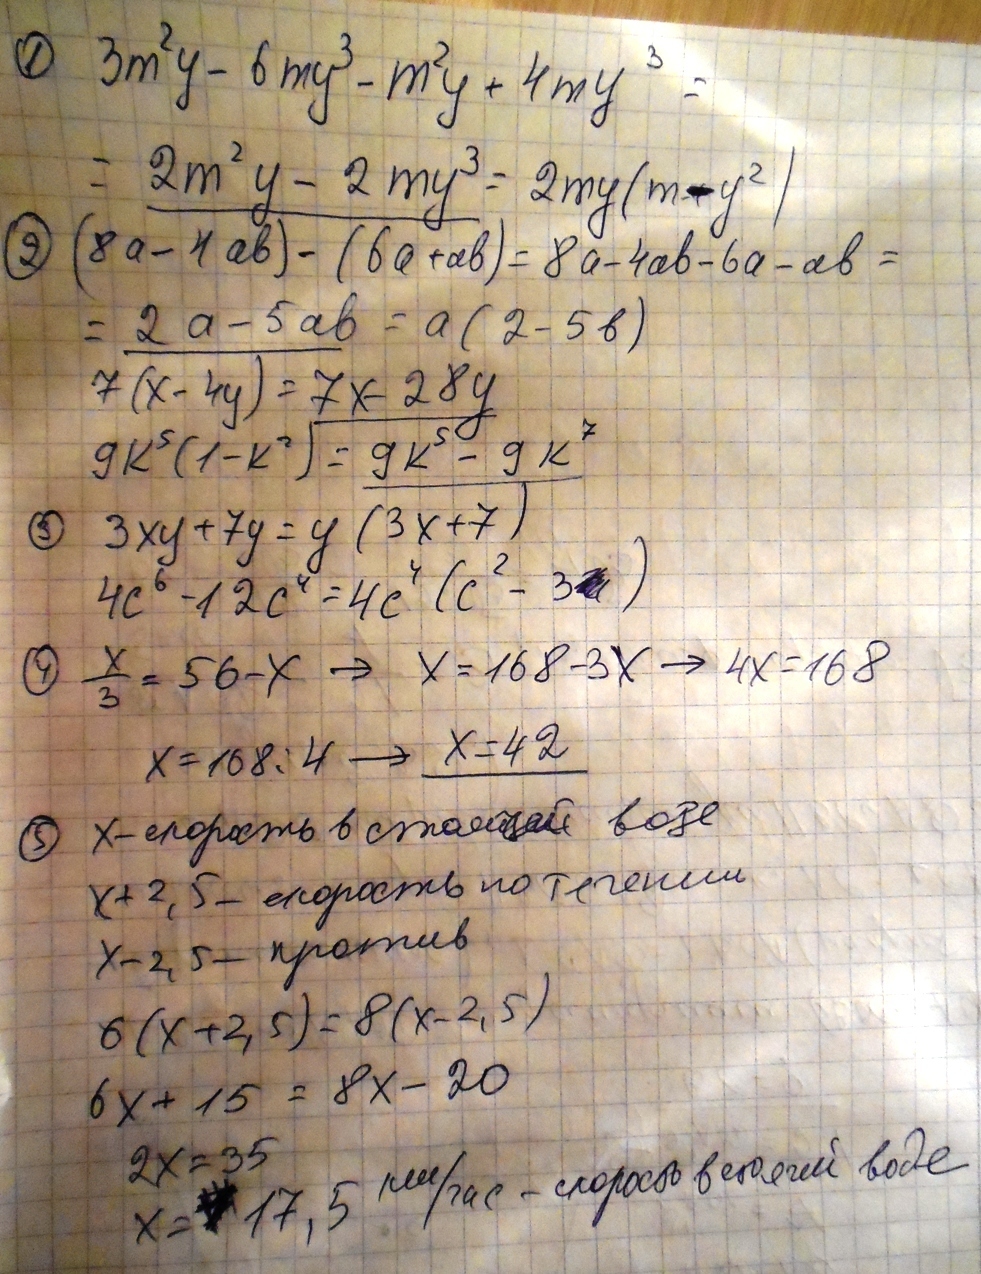 ① 3m²y - 6my³ - m²y + 4my³ =
= 2m²y - 2my³ = 2my(m - y²)
② (8a - 4ab) - (6a + ab) = 8a - 4ab - 6a - ab =
= 2a - 5ab = a(2 - 5b)
7(x - 4y) = 7x - 28y
9k⁵(1 - k²) = 9k⁵ - 9k⁷
③ 3xy + 7y = y(3x + 7)
4c⁶ - 12c⁴ = 4c⁴(c² - 3)
④ x/3 = 56 - x → x = 168 - 3x → 4x = 168
x = 168 : 4 → x = 42
⑤ x - скорость в стоящей воде
x + 2,5 - скорость по течении
x - 2,5 - против
6(x + 2,5) = 8(x - 2,5)
6x + 15 = 8x - 20
2x = 35
x = 17,5 км/час - скорость в стоячей воде